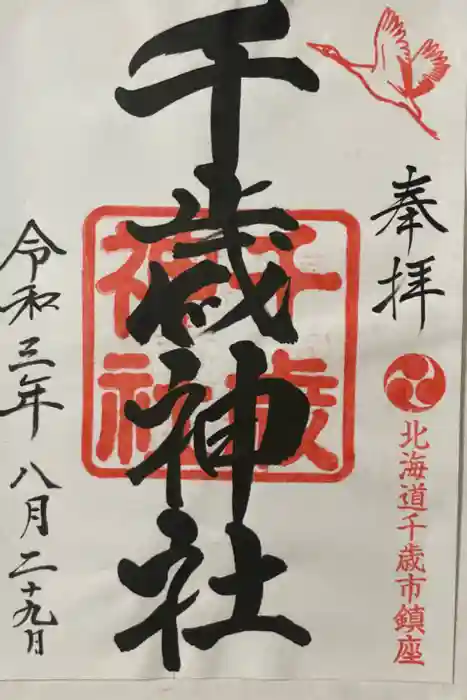 奉拝
北海道千歳市鎮座
千歳神社
千歳
神社
令和三年八月二十九日